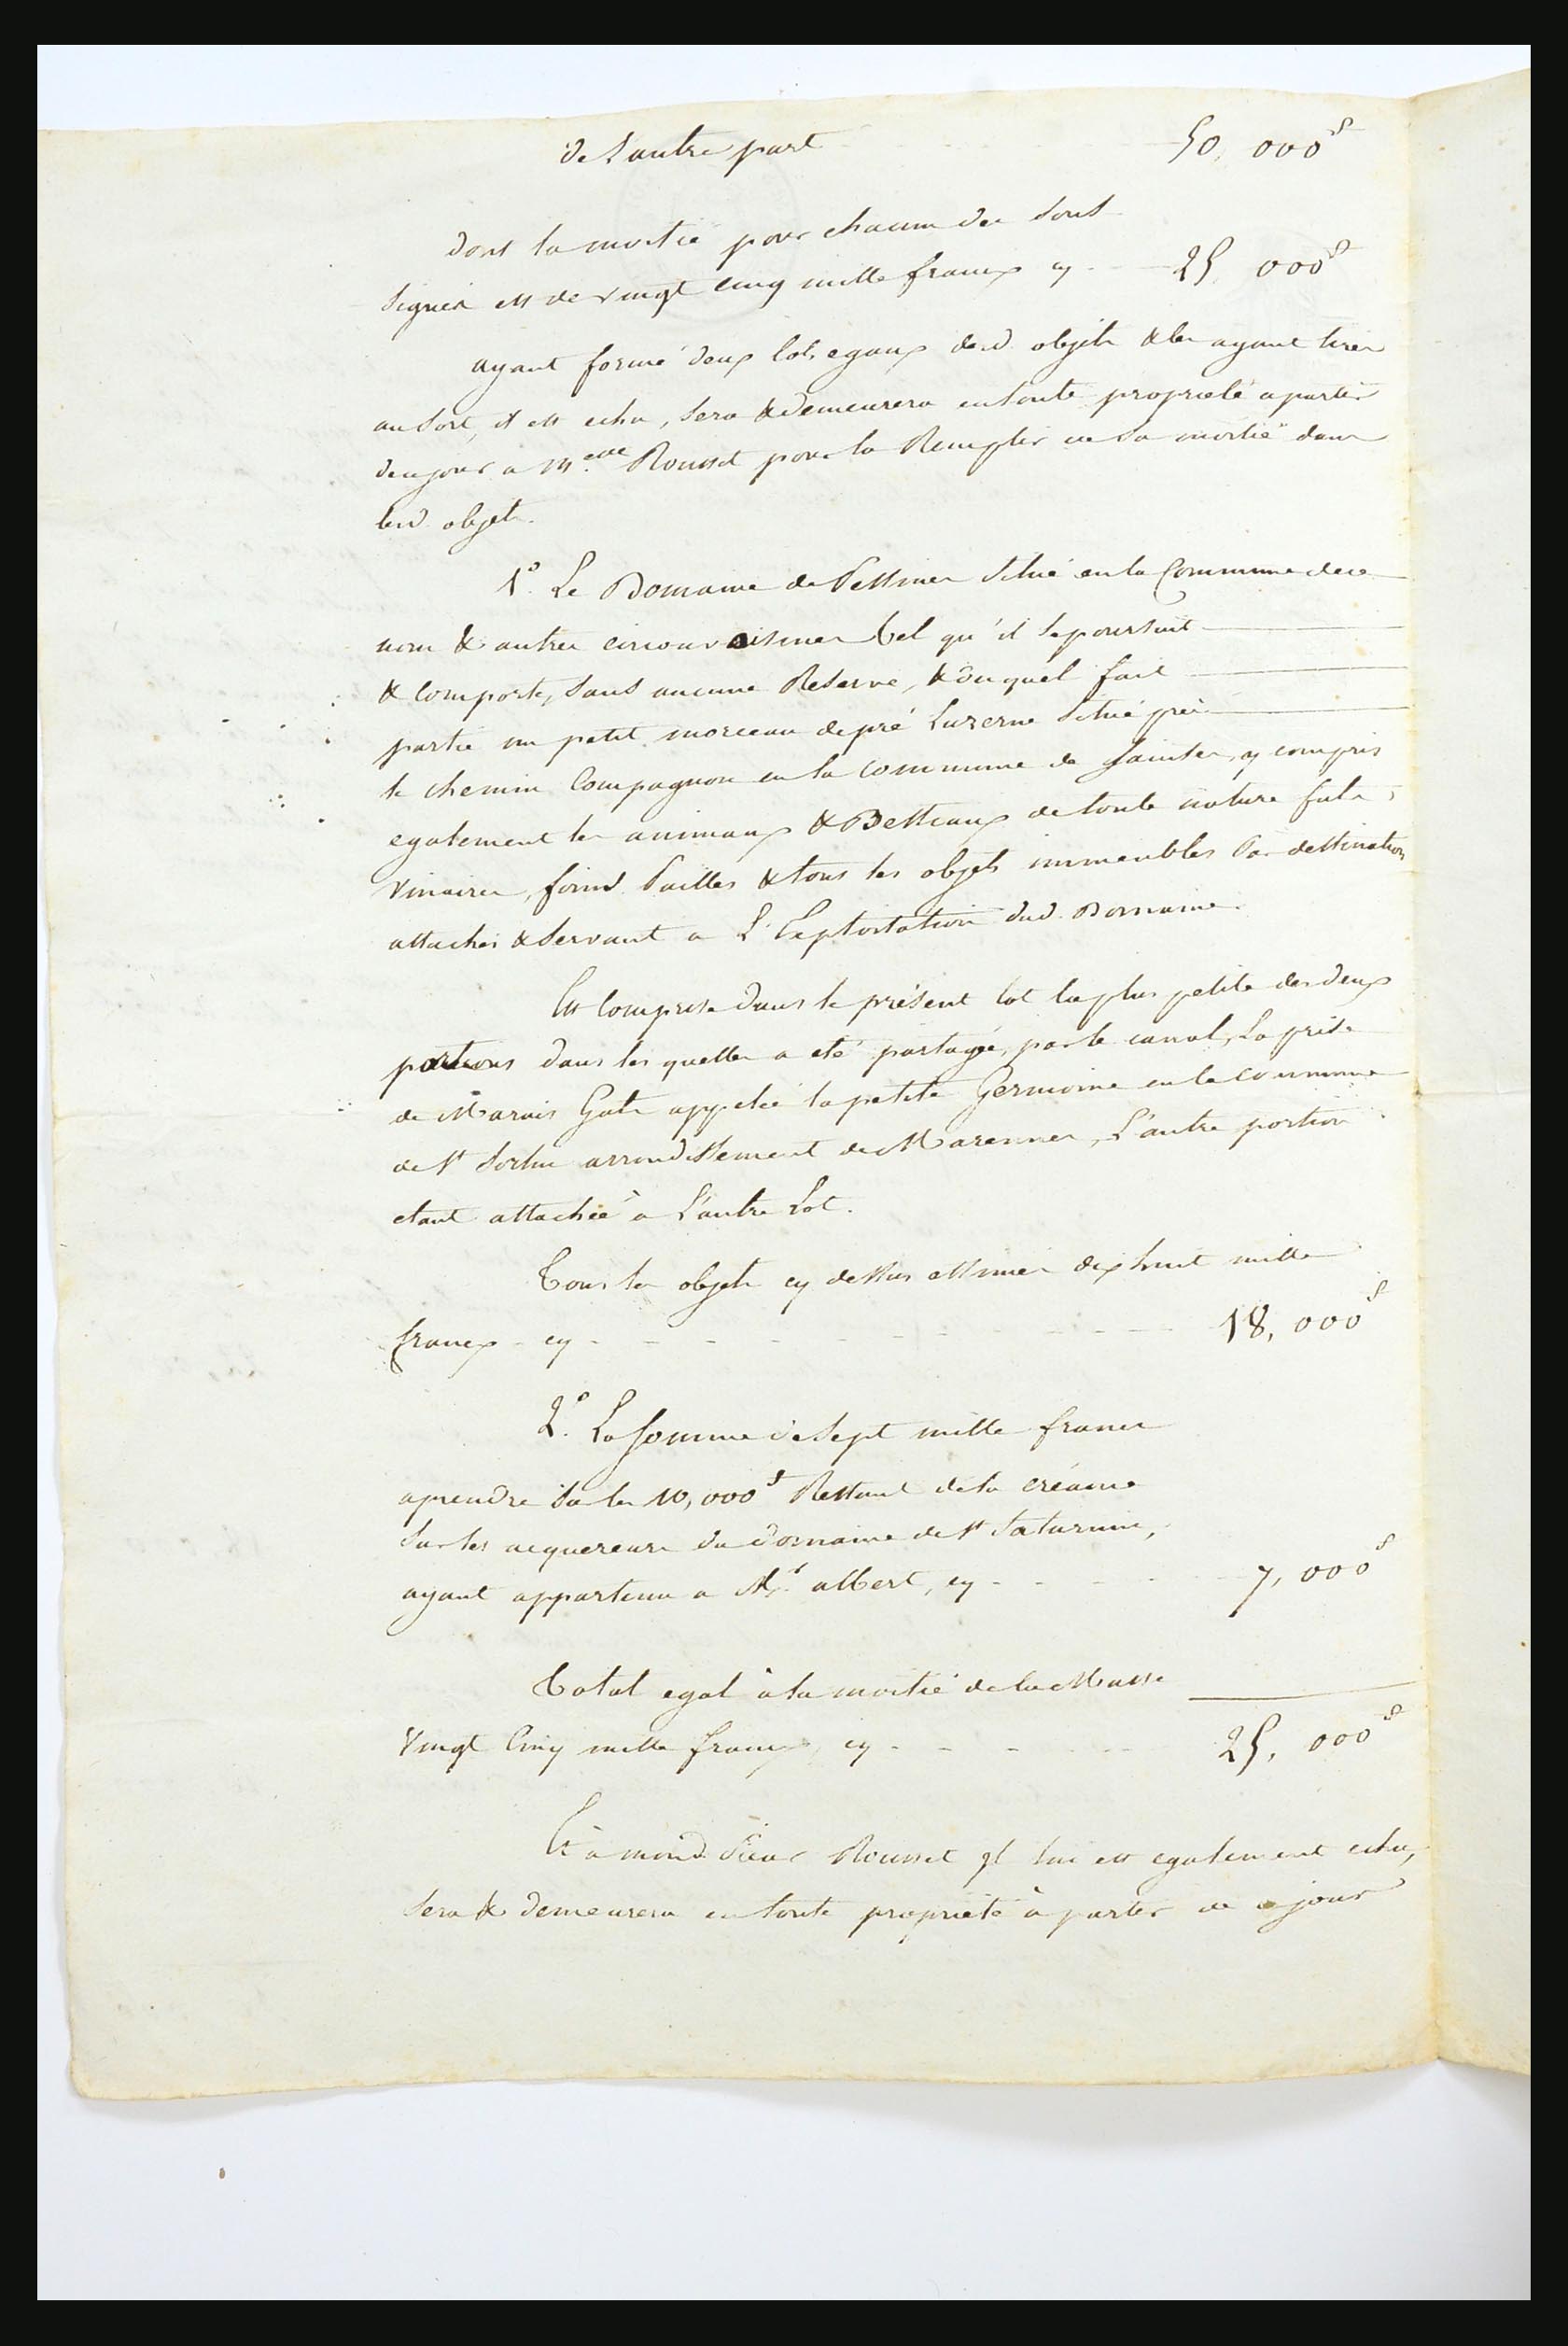 de l'autre part 50,000f
dont la moitié pour chacun des sous
signés est de vingt cinq mille francs cy 25,000f
ayant formé deux lots egaux desd. objets & les ayant tirés
au sort, il est echu, sera & demeurera en toute propriété a partir
de ce jour a Mme Rousset pour la Remplir de sa moitié dans
lesd. objets.
1º. Le Domaine de Pessines situé en la Commune de ce
nom & autres circonvoisines tel qu'il se poursuit
& comporte, sans aucune Reserve, & duquel fait
partie un petit morceau de pré Luzerne situé près
le chemin Compagnon en la commune de Saintes, y compris
egalement les animaux & Bestiaux de toute nature futs,
vinaires, foins Pailles & tous les objets immeubles Par destination
attachés & servant a L'Exploitation dud. Domaine.
Est comprise dans le présent lot la plus petite des deux
portions dans les quelles a eté partagée, par le canal, La prise
de Marais Gats appelée la petite Germoine en la commune
de St Sornin arrondissement de Marennes, L'autre portion
etant attachée a L'autre Lot.
Tous les objets cy dessus estimés dix huit mille
francs cy 18,000f
2º. La somme de Sept mille francs
a prendre sur les 10,000f Restant de la créance
sur les acquereurs du domaine de St Saturnin,
ayant appartenu a Mr. albert, cy 7,000f
Total egal à la moitié de la Masse
Vingt Cinq mille francs, cy 25,000f
Et à mond. Sieur Rousset il lui est egalement echu,
sera & demeurera en toute propriété à partir de ce jour